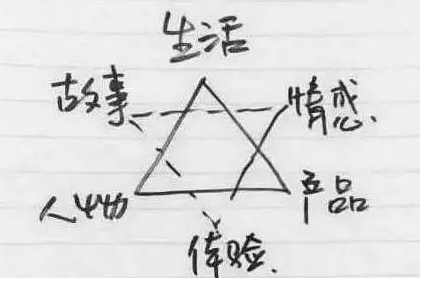 生活
故事 情感
人物 产品
体验